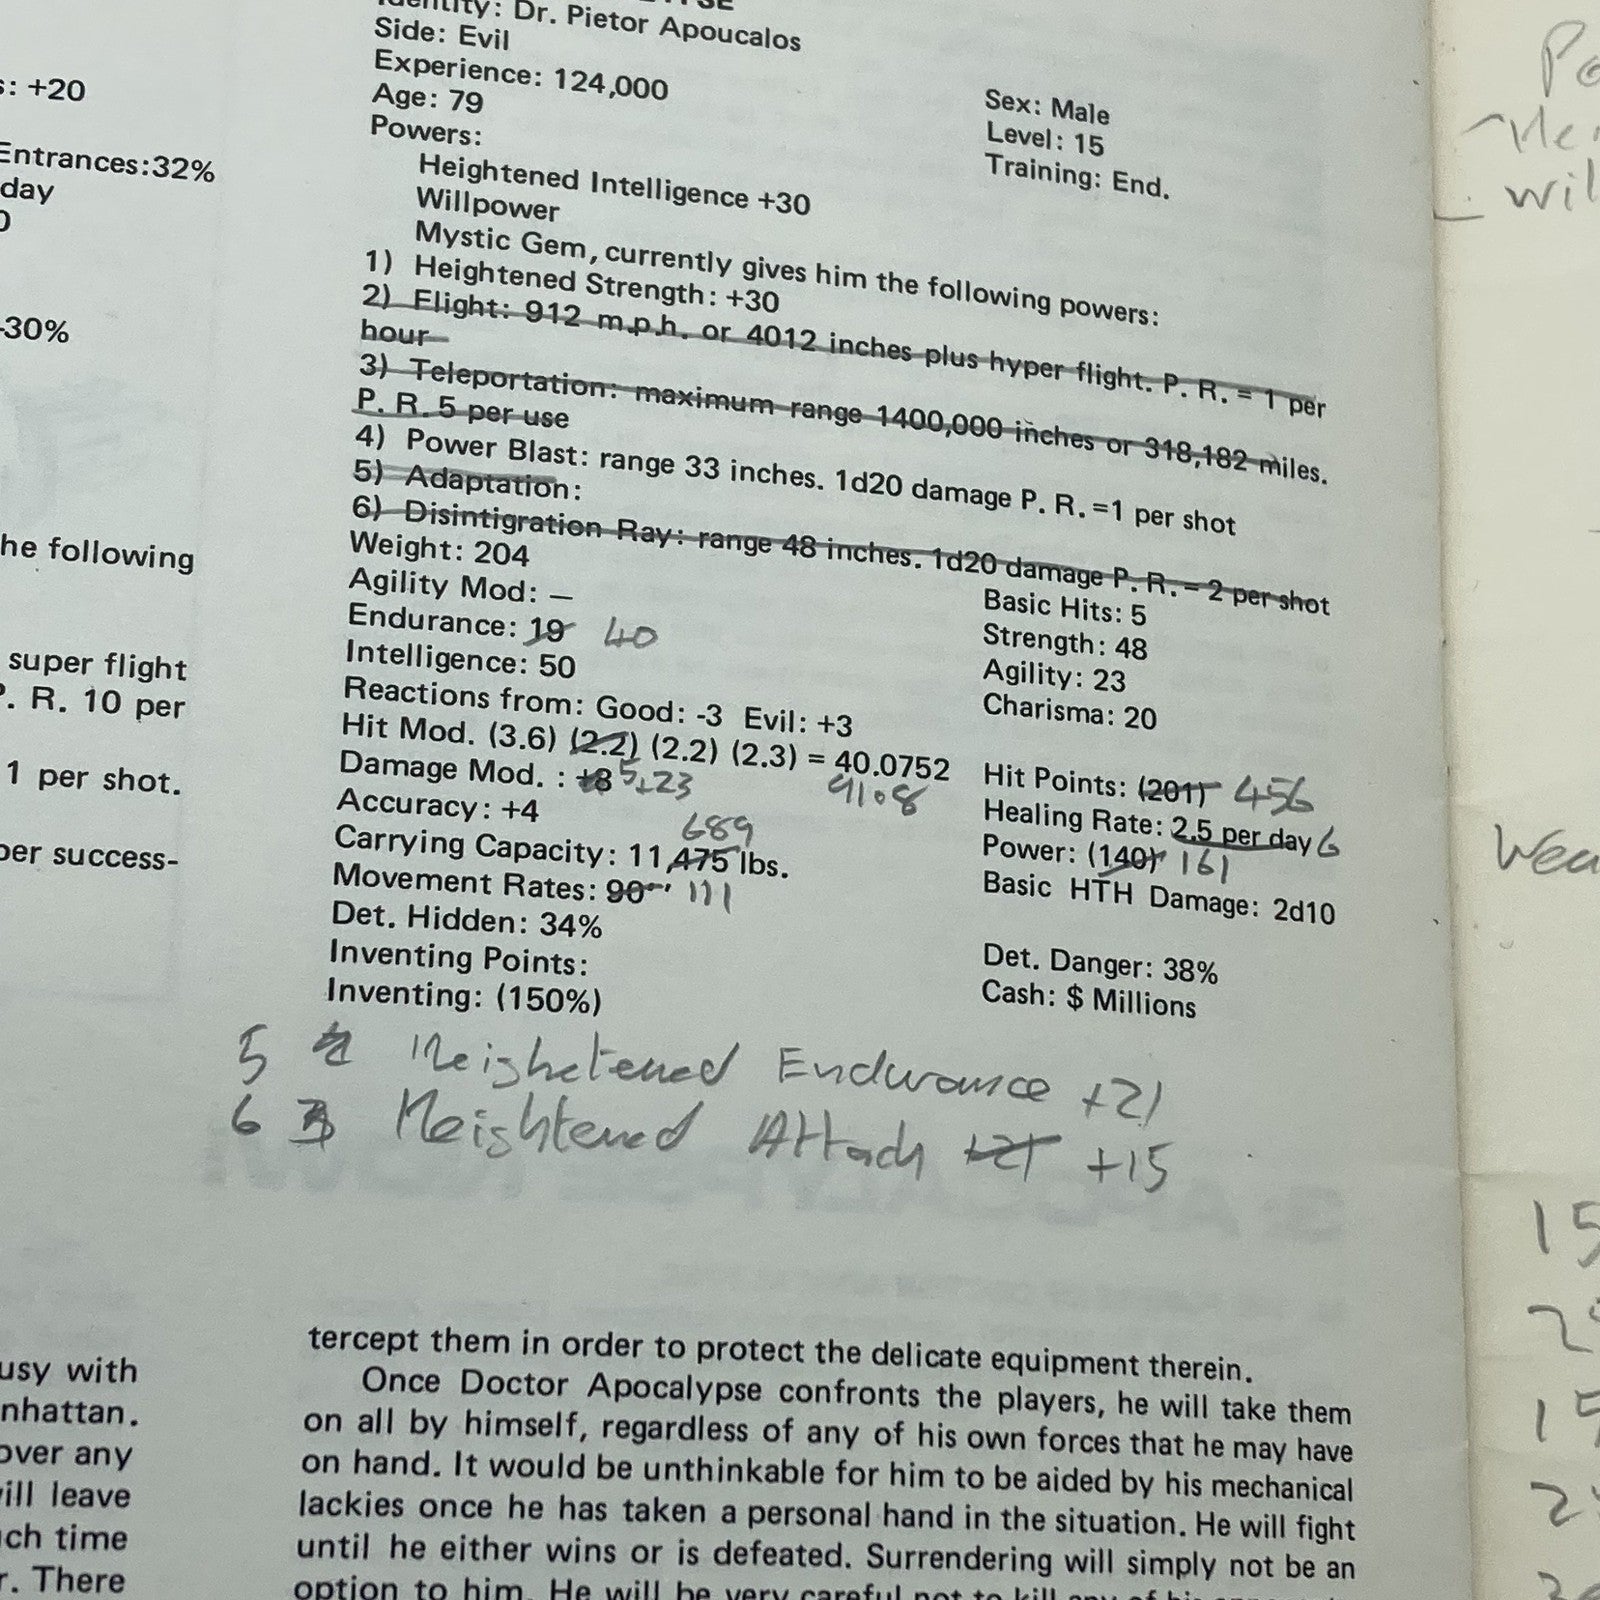 : +20
Entrances:32%
day
-30%
he following
super flight
P. R. 10 per
1 per shot.
per success-
usy with
nhattan.
over any
ill leave
ch time
r. There
Identity: Dr. Pietor Apoucalos
Side: Evil
Experience: 124,000
Sex: Male
Age: 79
Level: 15
Powers:
Training: End.
Heightened Intelligence +30
Willpower
Mystic Gem, currently gives him the following powers:
1) Heightened Strength: +30
2) Flight: 912 m.p.h. or 4012 inches plus hyper flight. P. R. = 1 per
hour
3) Teleportation: maximum range 1400,000 inches or 318,182 miles.
P. R. 5 per use
4) Power Blast: range 33 inches. 1d20 damage P. R. =1 per shot
5) Adaptation:
6) Disintigration Ray: range 48 inches. 1d20 damage P. R. = 2 per shot
Weight: 204
Basic Hits: 5
Agility Mod: —
Strength: 48
Endurance: 19 40
Agility: 23
Intelligence: 50
Charisma: 20
Reactions from: Good: -3 Evil: +3
Hit Mod. (3.6) (2.2) (2.2) (2.3) = 40.0752
5 9108
Hit Points: (201) 456
Damage Mod. : +8 +23
Healing Rate: 2.5 per day 6
Accuracy: +4
Power: (140) 161
689
Carrying Capacity: 11,475 lbs.
Basic HTH Damage: 2d10
Movement Rates: 90" 111
Det. Hidden: 34%
Det. Danger: 38%
Inventing Points:
Cash: $ Millions
Inventing: (150%)
5 Heighetened Endurance +21
6 Heightened Attack +21 +15
tercept them in order to protect the delicate equipment therein.
Once Doctor Apocalypse confronts the players, he will take them
on all by himself, regardless of any of his own forces that he may have
on hand. It would be unthinkable for him to be aided by his mechanical
lackies once he has taken a personal hand in the situation. He will fight
until he either wins or is defeated. Surrendering will simply not be an
option to him. He will be very careful not to kill any of his
Po
will
Wea
15